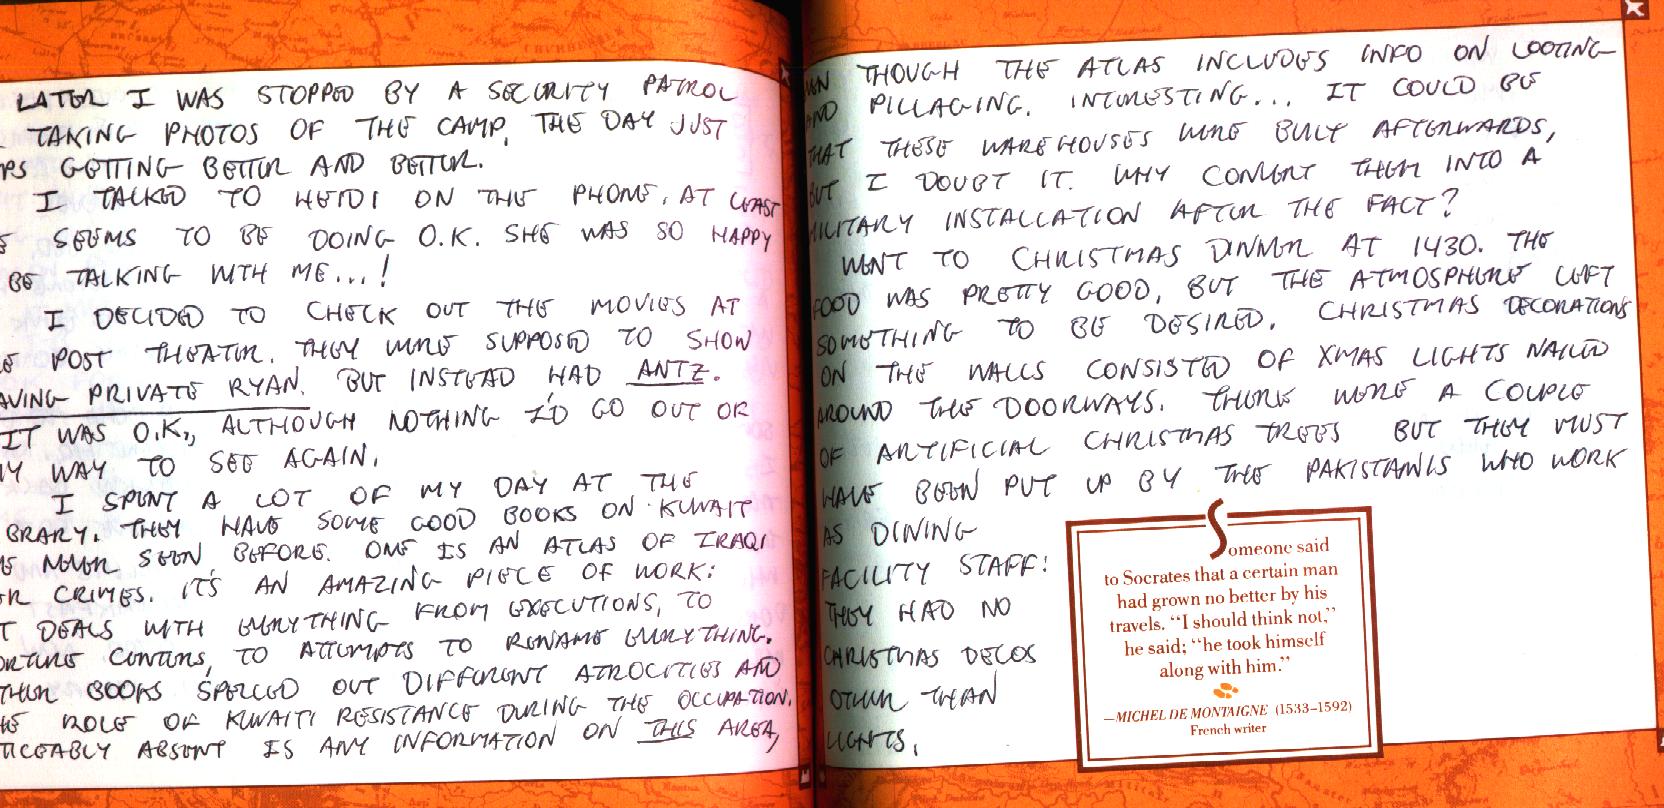 LATER I WAS STOPPED BY A SECURITY PATROL
TAKING PHOTOS OF THE CAMP. THE DAY JUST
PS GETTING BETTER AND BETTER.
I TALKED TO HEIDI ON THE PHONE. AT LEAST
E SEEMS TO BE DOING O.K. SHE WAS SO HAPPY
BE TALKING WITH ME...!
I DECIDED TO CHECK OUT THE MOVIES AT
E POST THEATER. THEY WERE SUPPOSED TO SHOW
AVING PRIVATE RYAN. BUT INSTEAD HAD ANTZ.
IT WAS O.K., ALTHOUGH NOTHING I'D GO OUT OR
MY WAY TO SEE AGAIN.
I SPENT A LOT OF MY DAY AT THE
BRARY. THEY HAVE SOME GOOD BOOKS ON KUWAIT
VE NEVER SEEN BEFORE. ONE IS AN ATLAS OF IRAQI
R CRIMES. IT'S AN AMAZING PIECE OF WORK:
T DEALS WITH EVERYTHING FROM EXECUTIONS, TO
ORTURE CENTERS, TO ATTEMPTS TO RENAME EVERYTHING.
THER BOOKS SPELLED OUT DIFFERENT ATROCITIES AND
HE ROLE OF KUWAITI RESISTANCE DURING THE OCCUPATION.
TICEABLY ABSENT IS ANY INFORMATION ON THIS AREA,
EN THOUGH THE ATLAS INCLUDES INFO ON LOOTING
AND PILLAGING. INTERESTING... IT COULD BE
THAT THESE WAREHOUSES WERE BUILT AFTERWARDS,
BUT I DOUBT IT. WHY CONVERT THEM INTO A
MILITARY INSTALLATION AFTER THE FACT?
WENT TO CHRISTMAS DINNER AT 1430. THE
FOOD WAS PRETTY GOOD, BUT THE ATMOSPHERE LEFT
SOMETHING TO BE DESIRED. CHRISTMAS DECORATIONS
ON THE WALLS CONSISTED OF XMAS LIGHTS NAILED
AROUND THE DOORWAYS. THERE WERE A COUPLE
OF ARTIFICIAL CHRISTMAS TREES BUT THEY MUST
HAVE BEEN PUT UP BY THE PAKISTANIS WHO WORK
AS DINING
FACILITY STAFF:
THEY HAD NO
CHRISTMAS DECOS
OTHER THAN
LIGHTS.
Someone said
to Socrates that a certain man
had grown no better by his
travels. “I should think not,”
he said; “he took himself
along with him.”
—MICHEL DE MONTAIGNE (1533–1592)
French writer